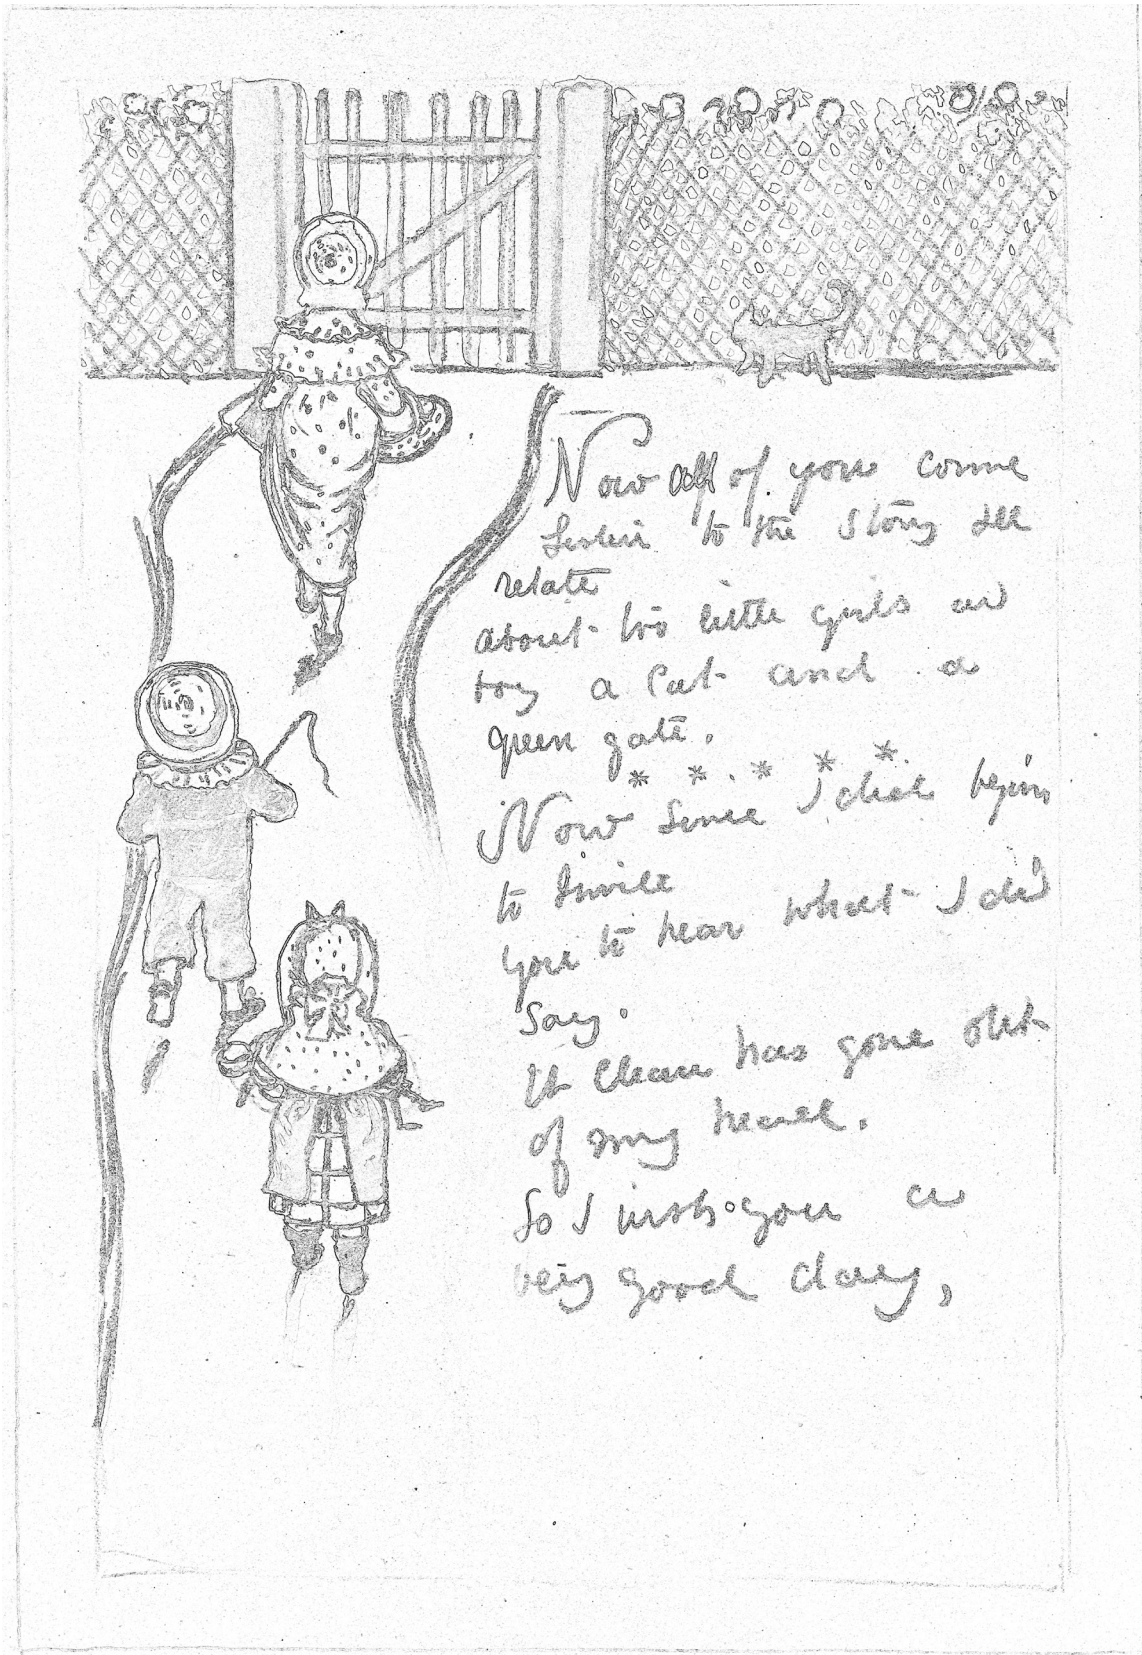 Now all of you come
Listen to the story Ill
relate
about two little girls a
boy a Cat and a
green gate.
* * * * *
Now Since I did begin
to Invite
you to hear what I did
Say.
It Clean has gone out
of my head.
So I wish you a
very good day,